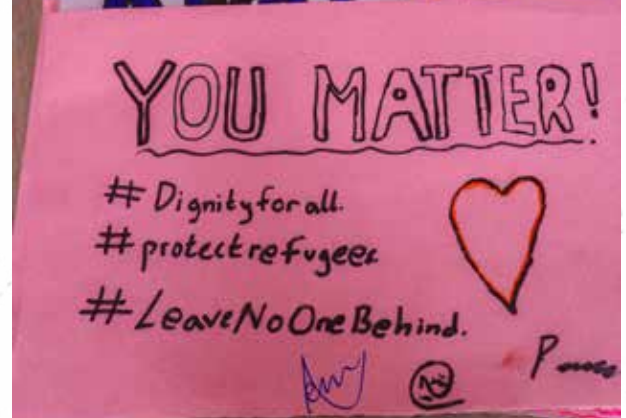 YOU MATTER!
# Dignityforall.
# protectrefugees
# LeaveNoOneBehind.